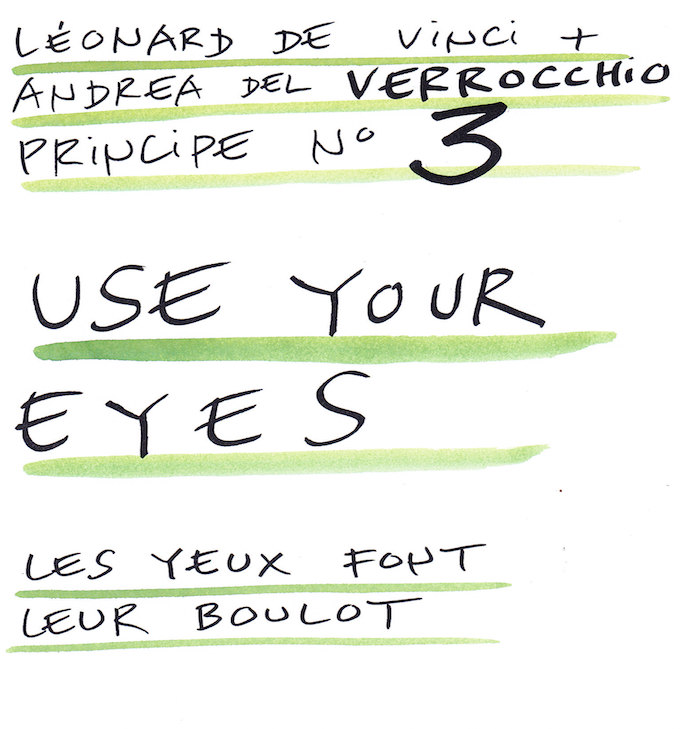 LÉONARD DE VINCI +
ANDREA DEL VERROCCHIO
PRINCIPE N° 3
USE YOUR
EYES
LES YEUX FONT
LEUR BOULOT